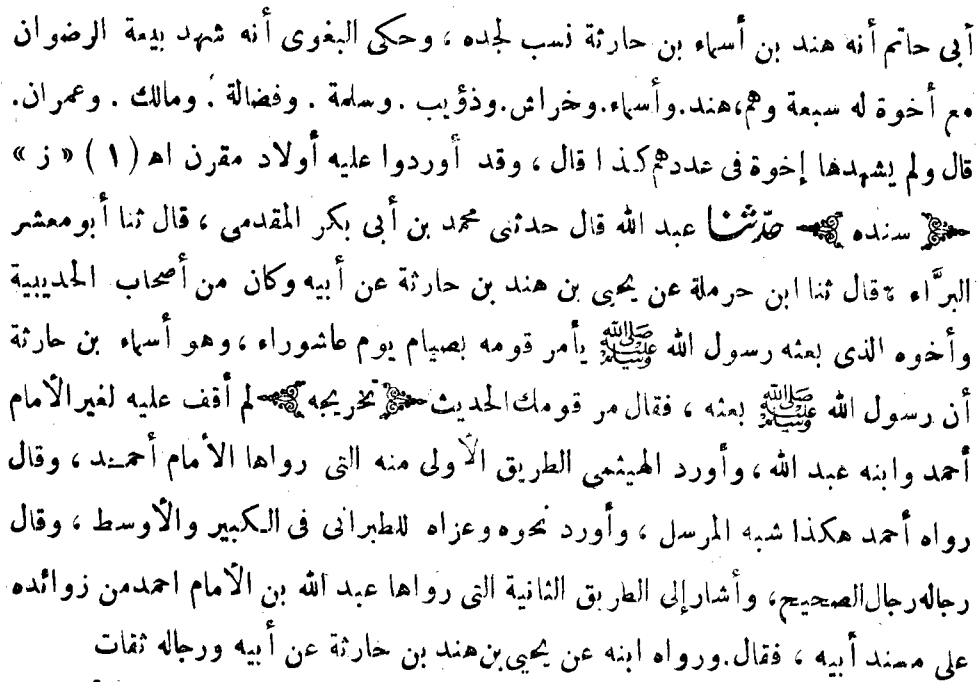 أبى حاتم أنه هند بن أسماء بن حارثة نسب لجده ، وحكى البغوى أنه شهد بيعة الرضوان
مع أخوة له سبعة وهم،هند.وأسماء.وخراش.وذؤيب .وسلمة . وفضالة . ومالك . وعمران.
قال ولم يشهدها إخوة فى عددهم كذا قال ، وقد أوردوا عليه أولاد مقرن اه ( ١ ) « ز »
﴿ سنده ﴾ حدّثنا عبد الله قال حدثنى محمد بن أبى بكر المقدمى ، قال ثنا أبو معشر
البرَّاء ، قال ثنا ابن حرملة عن يحيى بن هند بن حارثة عن أبيه وكان من أصحاب الحديبية
وأخوه الذى بعثه رسول الله ﷺ يأمر قومه بصيام يوم عاشوراء ، وهو أسماء بن حارثة
أن رسول الله ﷺ بعثه ، فقال مر قومك الحديث ﴿ تخريجه ﴾ لم أقف عليه لغير الأمام
أحمد وابنه عبد الله ، وأورد الهيثمى الطريق الأولى منه التى رواها الأمام أحمد ، وقال
رواه أحمد هكذا شبه المرسل ، وأورد نحوه وعزاه للطبرانى فى الكبير والأوسط ، وقال
رجاله رجال الصحيح، وأشار إلى الطريق الثانية التى رواها عبد الله بن الأمام احمد من زوائده
على مسند أبيه ، فقال.ورواه ابنه عن يحيى بن هند بن حارثة عن أبيه ورجاله ثقات